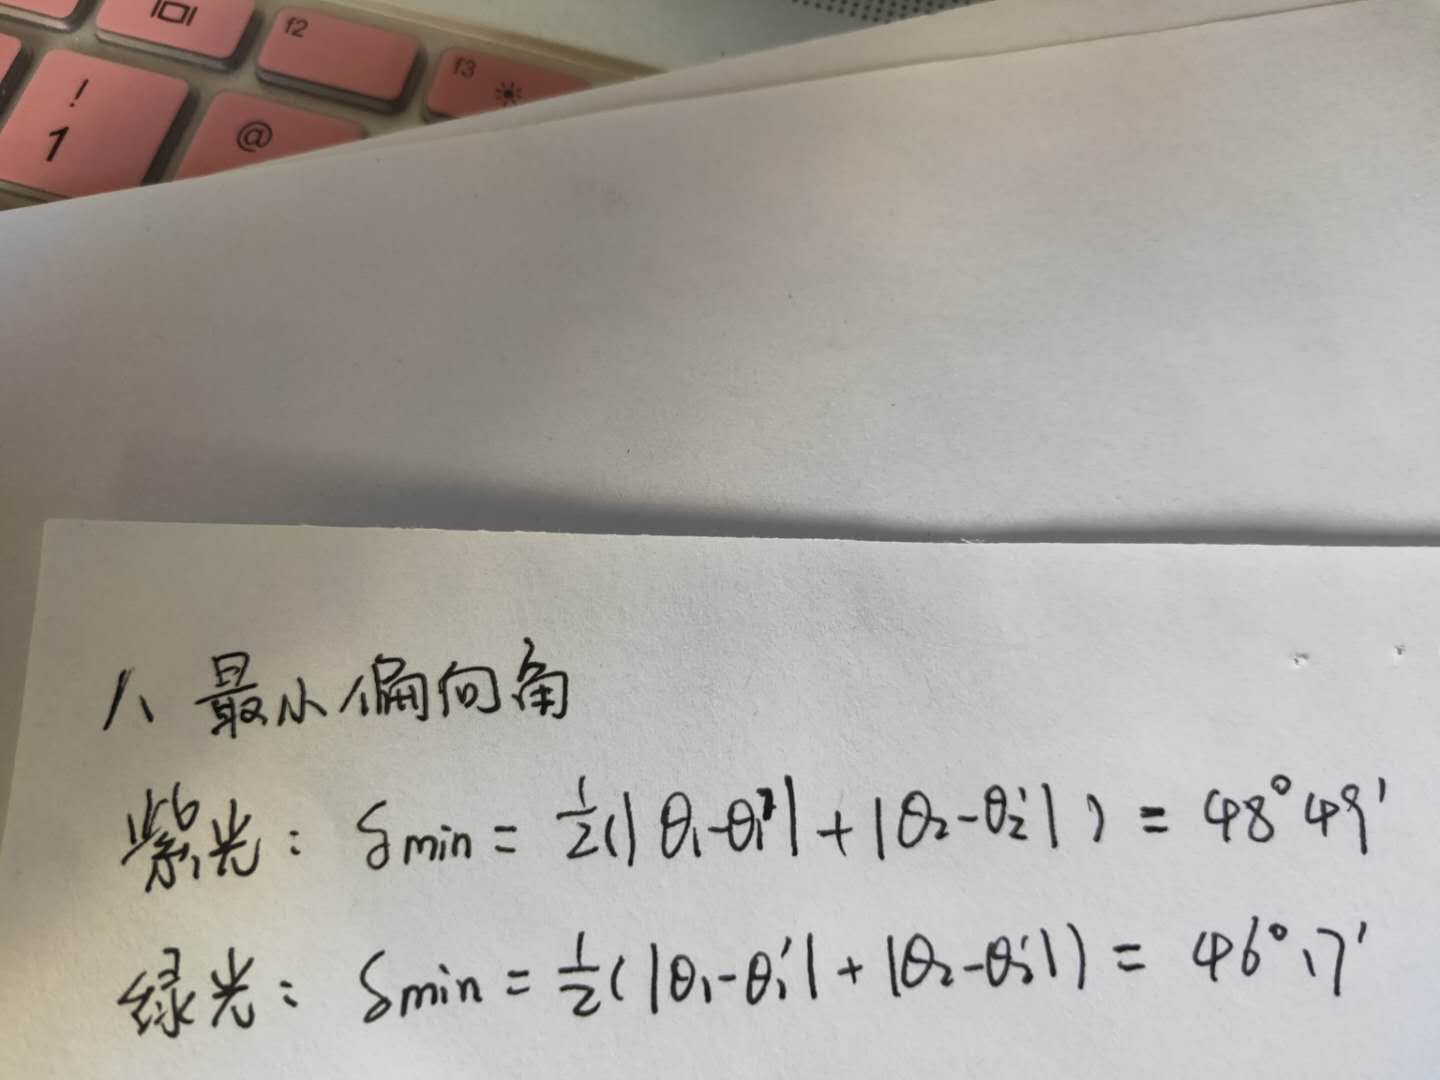 f2
f3
!
1
@
1、最小偏向角
紫光: δmin = 1/2(|θ₁-θ₁'|+|θ₂-θ₂'|) = 48°49'
绿光: δmin = 1/2(|θ₁-θ₁'|+|θ₂-θ₂'|) = 46°17'